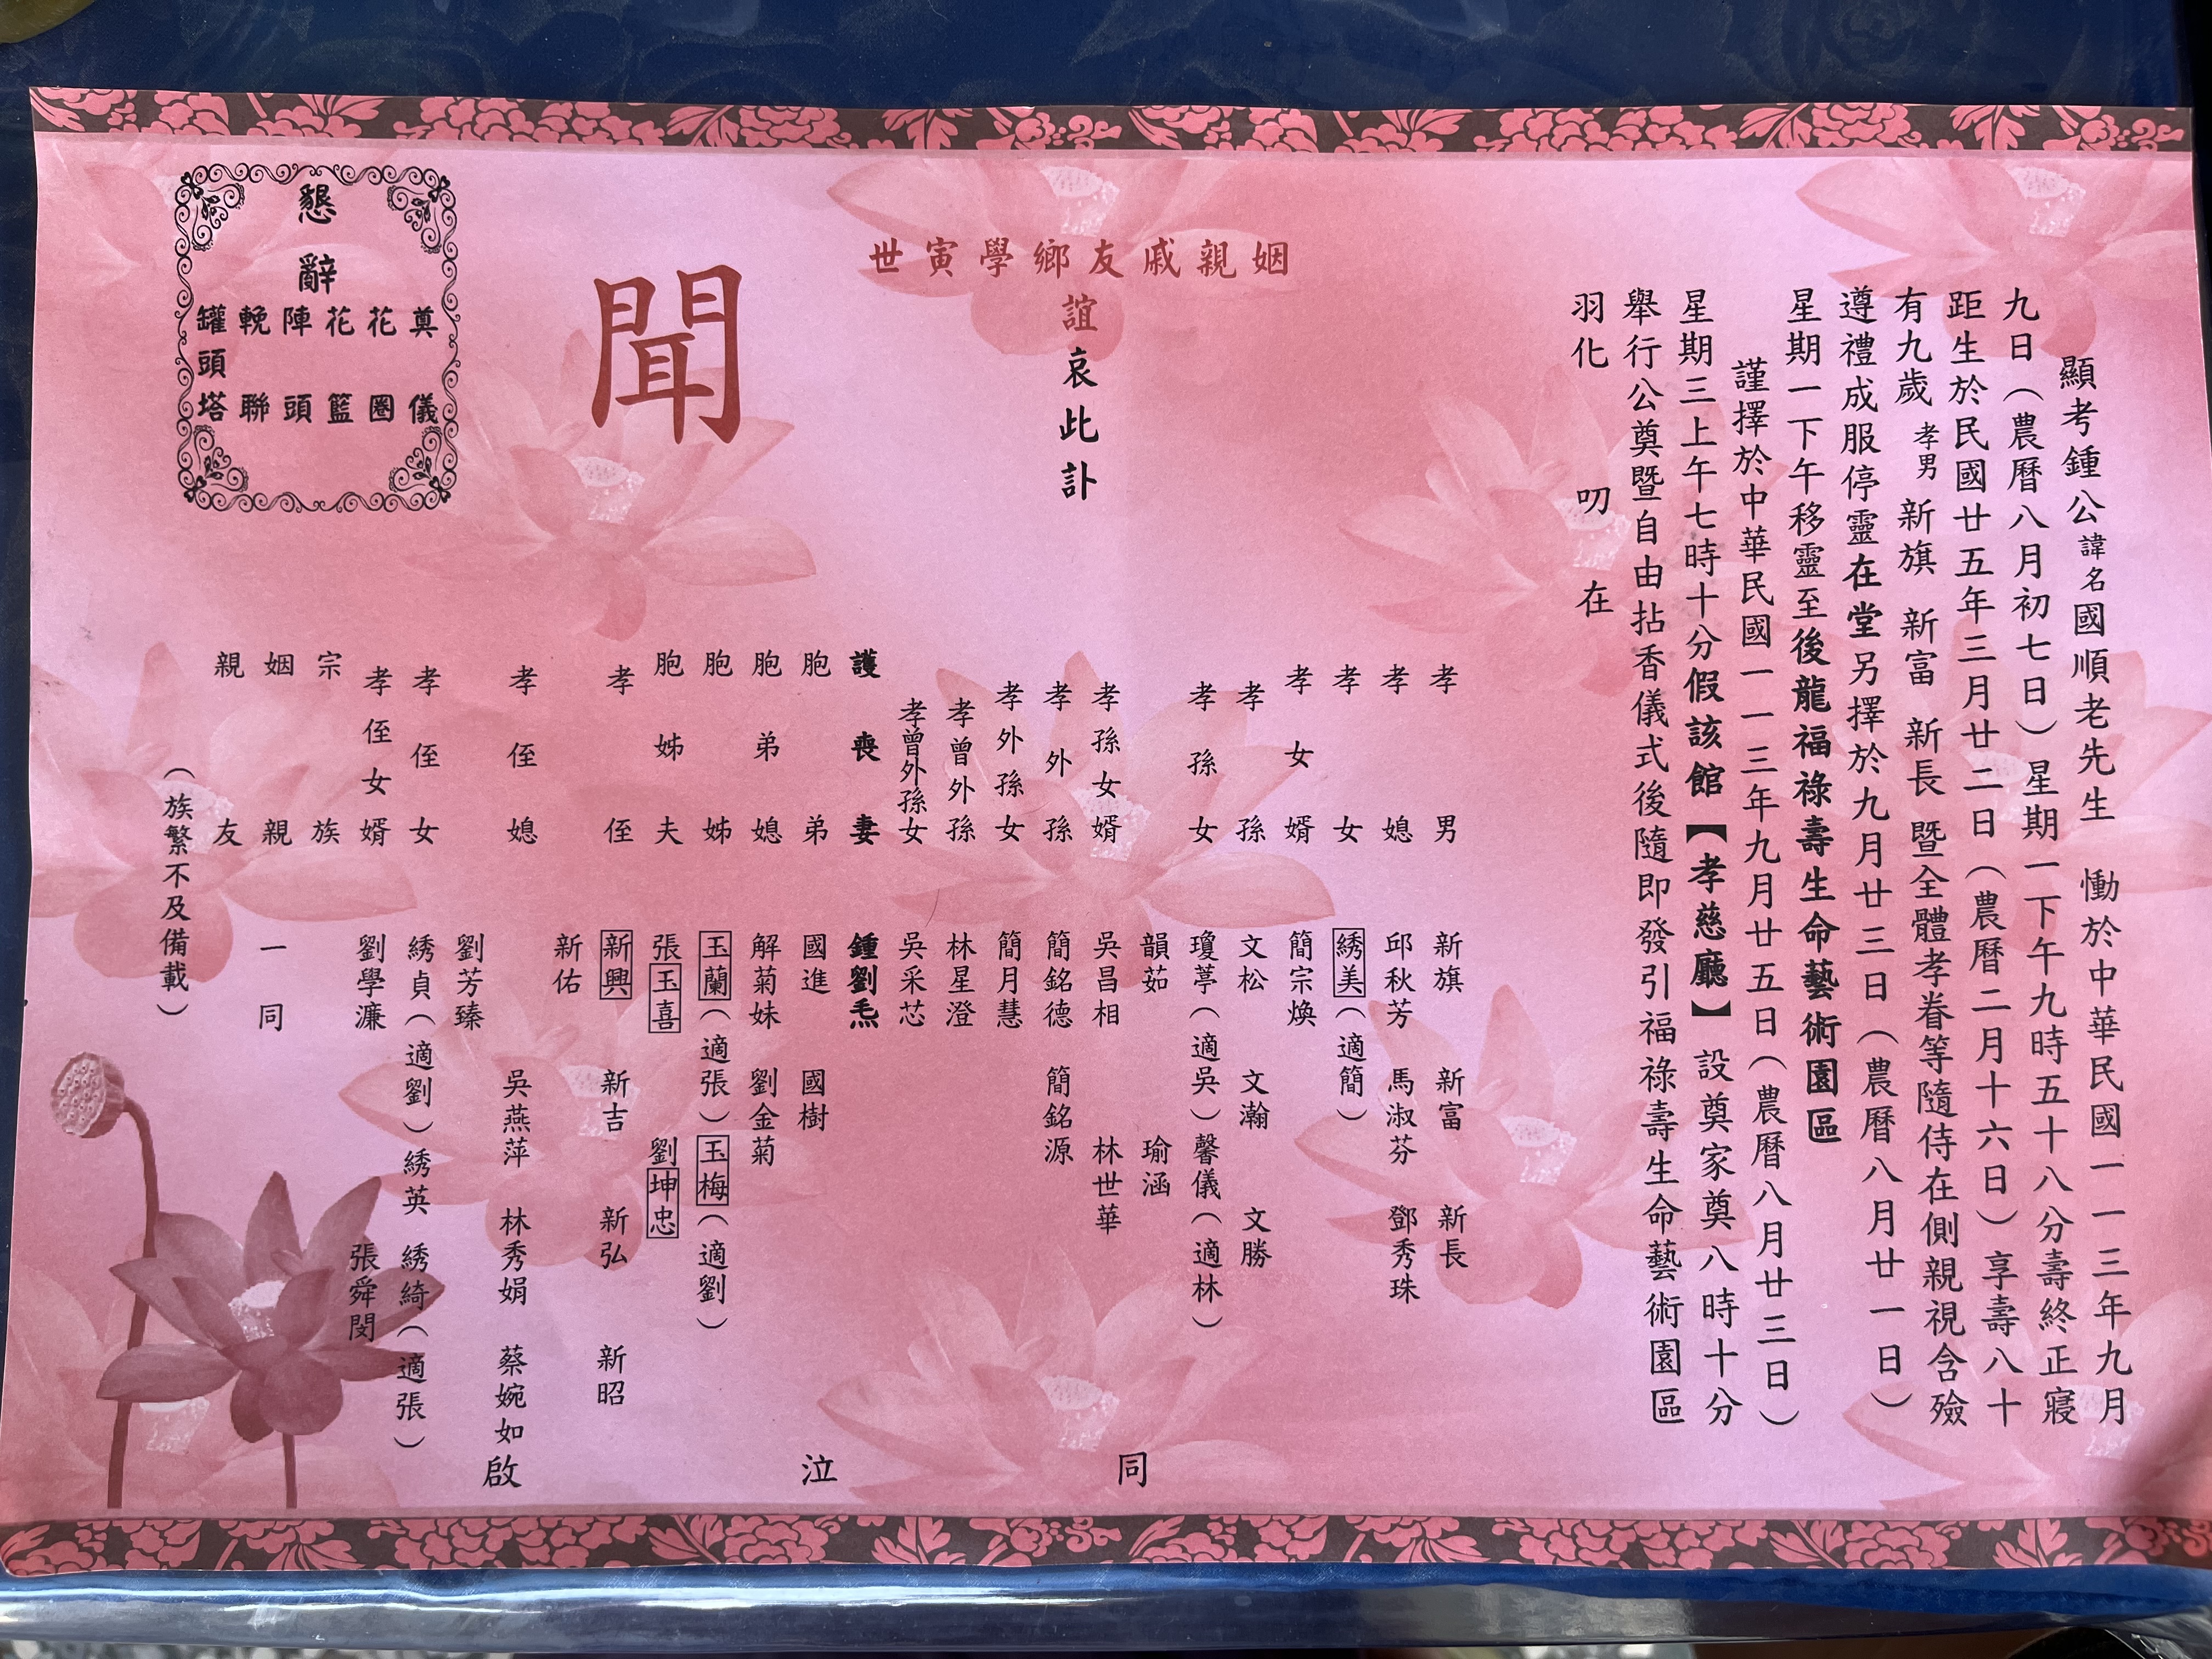 顯考鍾公諱名國順老先生　慟於中華民國一一三年九月
九日（農曆八月初七日）星期一下午九時五十八分壽終正寢
距生於民國廿五年三月廿二日（農曆二月十六日）享壽八十
有九歲　孝男　新旗　新富　新長　暨全體孝眷等隨侍在側親視含殮
遵禮成服停靈在堂另擇於九月廿三日（農曆八月廿一日）
星期一下午移靈至後龍福祿壽生命藝術園區
謹擇於中華民國一一三年九月廿五日（農曆八月廿三日）
星期三上午七時十分假該館【孝慈廳】設奠家奠八時十分
舉行公奠暨自由拈香儀式後隨即發引福祿壽生命藝術園區
羽化　叨　在
姻親戚友鄉學寅世
誼哀此訃
聞
孝男　新旗　新富　新長
孝媳　邱秋芳　馬淑芬　鄧秀珠
孝女　綉美（適簡）
孝女婿　簡宗煥
孝孫　文松　文瀚　文勝
孝孫女　瓊葶（適吳）馨儀（適林）
韻茹　瑜涵
孝孫女婿　吳昌相　林世華
孝外孫　簡銘德　簡銘源
孝外孫女　簡月慧
孝曾外孫　林星澄
孝曾外孫女　吳采芯
護喪妻　鍾劉𤆬
胞弟　國進　國樹
胞弟媳　解菊妹　劉金菊
胞姊　玉蘭（適張）玉梅（適劉）
胞姊夫　張玉喜　劉坤忠
孝侄　新興　新吉　新弘　新昭
新佑
孝侄媳　吳燕萍　林秀娟　蔡婉如
劉芳臻
孝侄女　綉貞（適劉）綉英　綉綺（適張）
孝侄女婿　劉學濂　張舜閔
宗族
姻親　一同
親友
（族繁不及備載）
同　泣　啟
懇辭
奠儀
花圈
花籃
陣頭
輓聯
罐頭塔